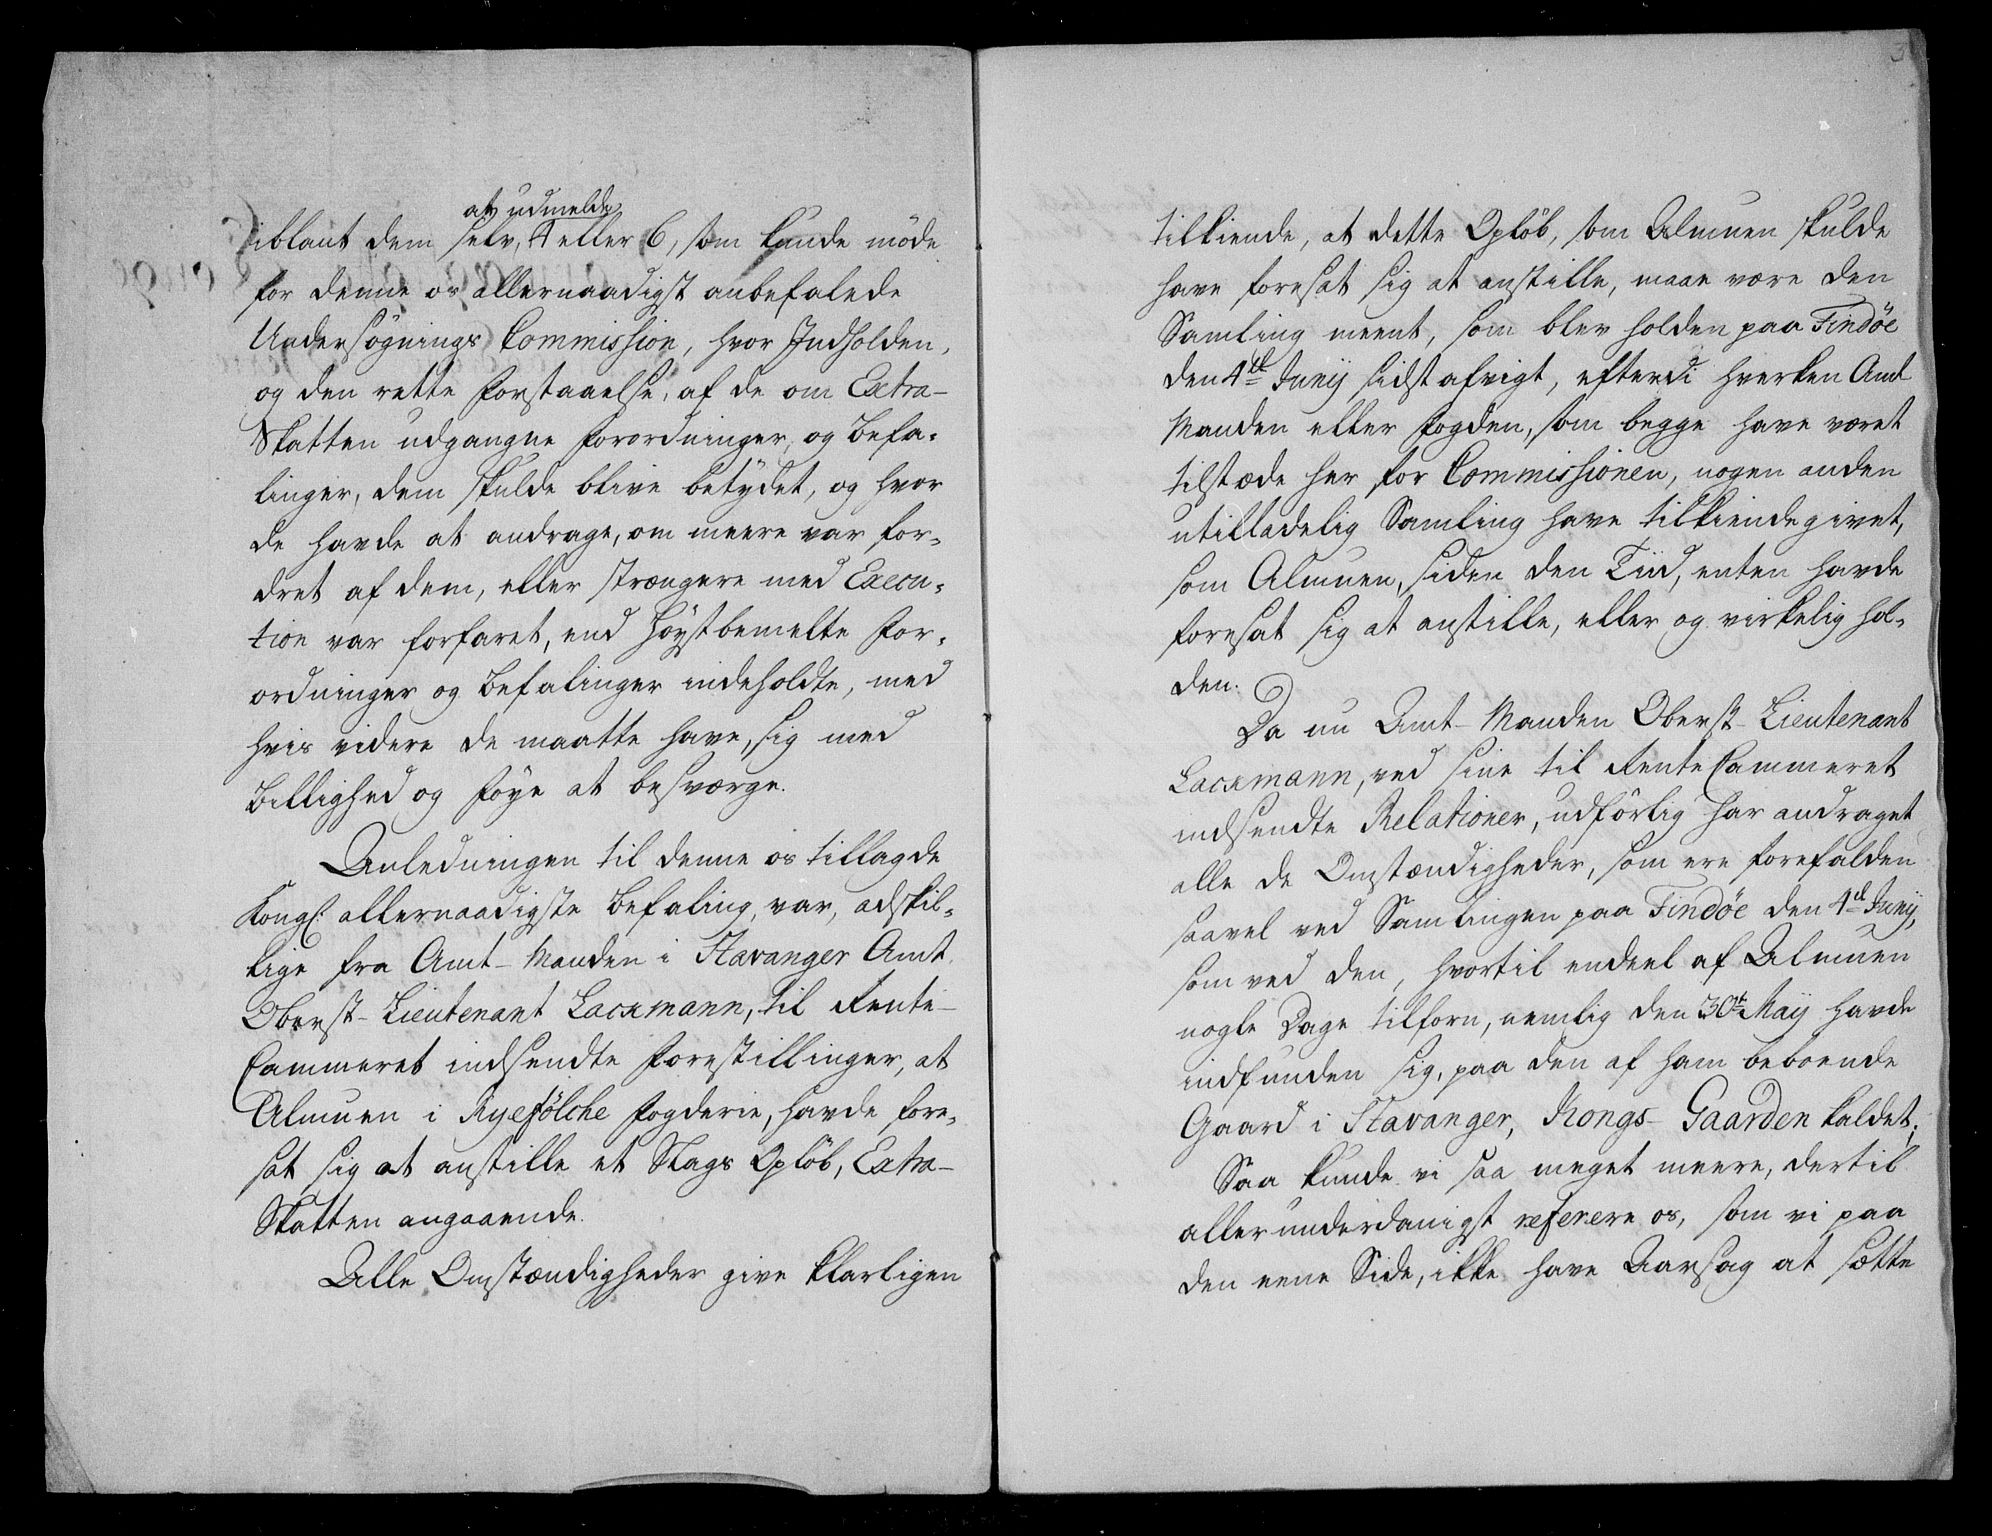 at udmelde
iblant dem selv, 4 eller 6, som kunde møde
for denne os allernaadigst anbefalede
Undersøgnings Commission, hvor Indholden,
og den rette Forstaaelse, af de om Extra-
Skatten udgangne Forordninger, og Befa-
linger, dem skulde blive betydet, og hvor
de havde at andrage, om meere var for-
dret af dem, eller strængere med Execu-
tion var forfaret, end høystbemelte For-
ordninger og Befalinger indeholdte, med
hvis videre de maatte have, sig med
Billighed og Føye at besværge.
Anledningen til denne os tillagde
Kongl: allernaadigste Befaling, var, adskil-
lige fra Amt-Manden i Stavanger Amt
Oberst-Lieutenant Lacxmann, til Rente-
Cammeret indsendte Forestillinger, at
Almuen i Ryefølche Fogderie, havde fore-
sat sig at anstille et Slags Opløb, Extra-
Skatten angaaende.
Alle Omstændigheder give klarligen
3
tilkiende, at dette Opløb, som Almuen skulde
have foresat sig at anstille, maae være den
Samling meent, som blev holden paa Findøe
den 4de Junij sidst afvigt, efterdi hverken Amt
Manden eller Fogden, som begge have været
tilstæde her for Commissionen, nogen anden
utilladelig Samling have tilkiendegivet,
som Almuen, siden den Tiid, enten havde
foresat sig at anstille, eller og virkelig hol-
den.
Da nu Amt-Manden Oberst-Lieutenant
Lacxmann, ved sine til RenteCammeret
indsendte Relationer, udførlig har andraget
alle de Omstændigheder, som ere forefalden
saavel ved Samlingen paa Findøe den 4de Junij,
som ved den, hvortil endeel af Almuen
nogle Dage tilforn, nemlig den 30te Maij havde
indfunden sig, paa den af ham beboende
Gaard i Stavanger, Kongs-Gaarden kaldet;
Saa kunde vi saa meget meere, dertil
allerunderdanigst referere os, som vi paa
den eene Side, ikke have Aarsag at sætte